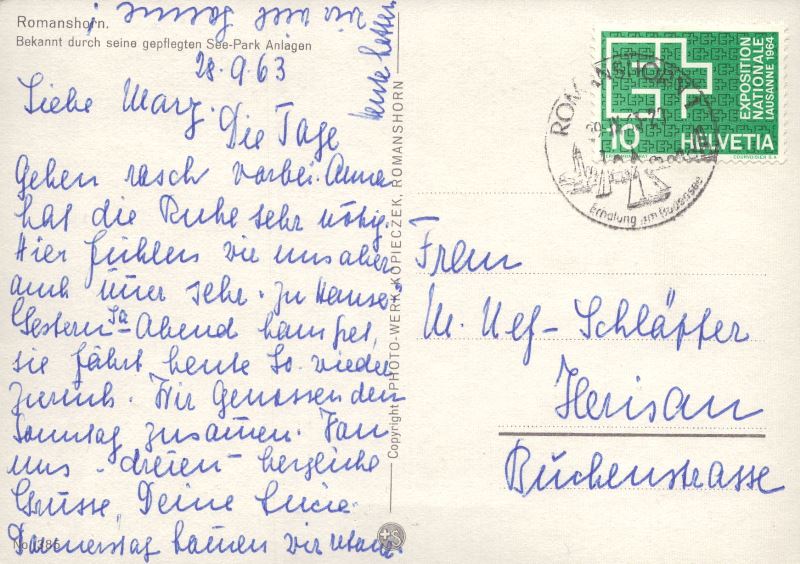 Romanshorn.
Bekannt durch seine gepflegten See-Park Anlagen
28.9.63
Liebe Mary.
Die Tage
gehen rasch vorbei. Anna
hat die Ruhe sehr nötig.
Hier fühlen wir uns aber
auch sehr zu Hause.
Gestern Sa Abend kam
sie fährt heute So. wieder
zurück. Wir Genossen den
Sonntag zusamen. Von
uns dreien herzliche
Grüsse, Deine Lucie
Donnerstag kamen wir
heute hatten
wir viel Sonne
No. 1385
Copyright PHOTO-WERK KOPIECZEK, ROMANSHORN
EXPOSITION
NATIONALE
LAUSANNE 1964
10 HELVETIA
COURVOISIER S.A.
ROMANSHORN 1
Erholung am Bodensee
Frau
M. Nef-Schläpfer
Herisau
Buchenstrasse